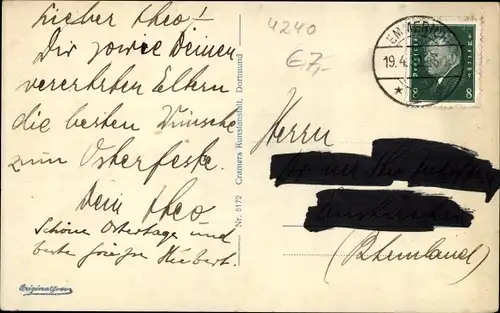 Lieber Theo!
Dir sowie Deinen
verehrten Eltern
die besten Wünsche
zum Osterfeste.
Dein Theo
Schöne Ostertage und
beste Grüße Hubert.
Originalfoto
Nr. 5172 Cramers Kunstanstalt, Dortmund
4240
€7,-
EMMERICH
19.4.
Deutsches Reich
8 8
Herrn
(Rheinland)